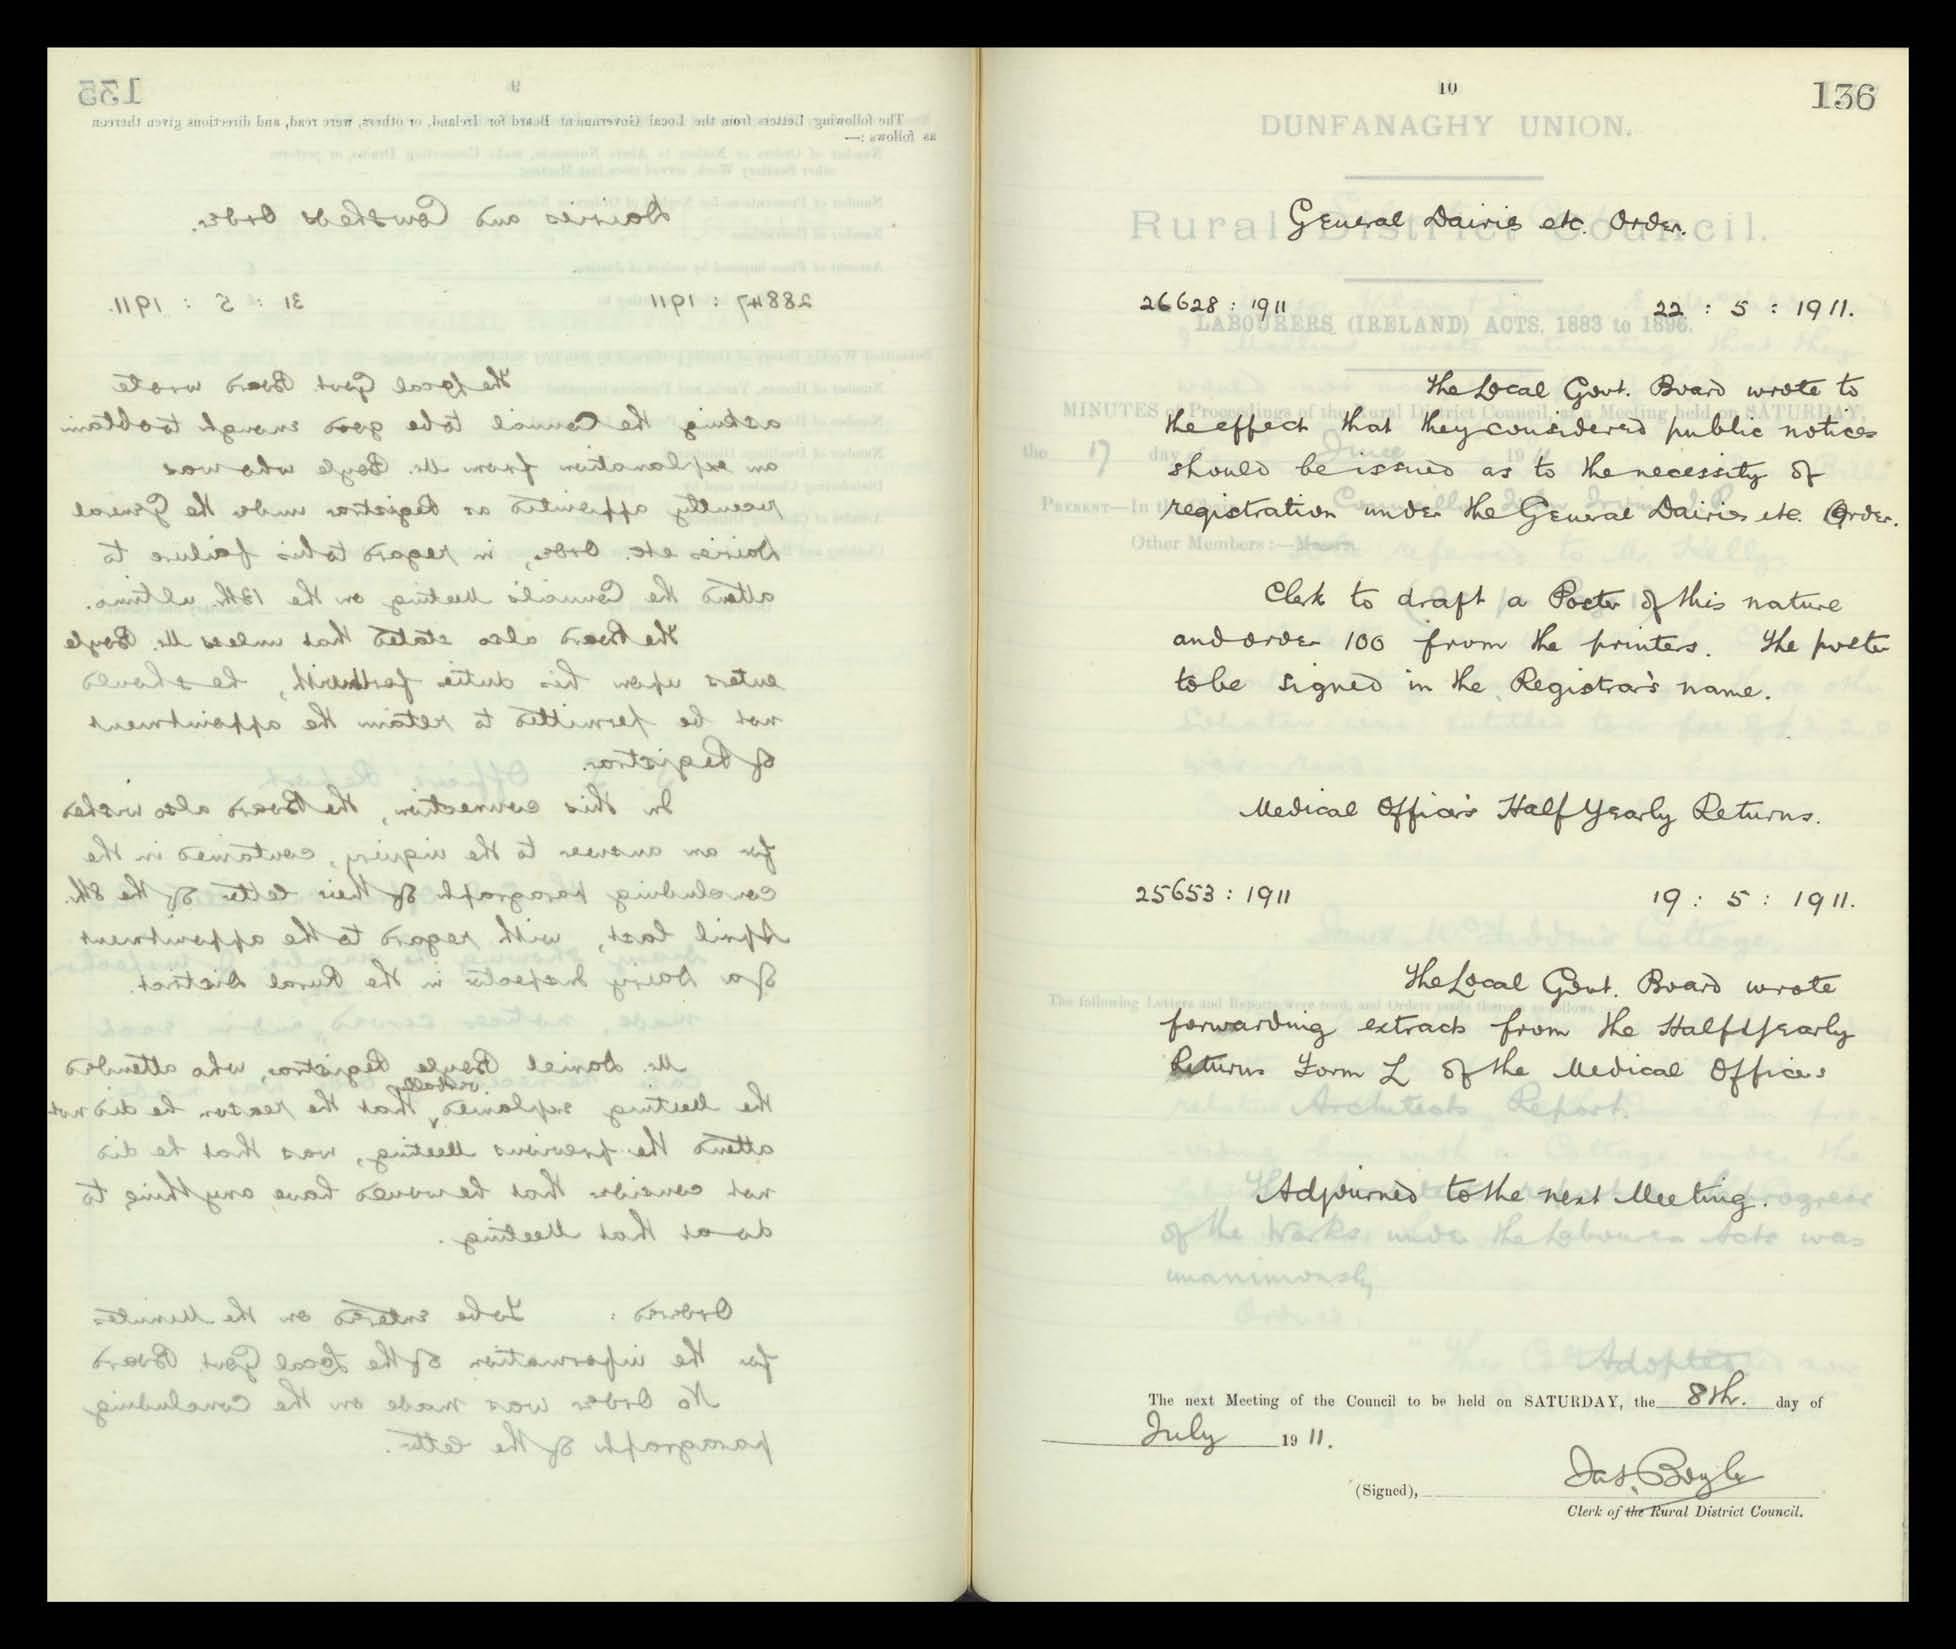 135
9
The following Letters from the Local Government Board for Ireland, or others, were read, and directions given thereon
as follows :—
Dairies and Cowsheds Order.
28847 : 1911 31 : 5 : 1911.
The Local Govt. Board wrote
asking the Council to be good enough to obtain
an explanation from Mr. Boyle who was
recently appointed as Registrar under the General
Dairies etc. Order, in regard to his failure to
attend the Council's Meeting on the 13th. ultimo.
The Board also stated that unless Mr. Boyle
enters upon his duties forthwith, he should
not be permitted to retain the appointment
of Registrar.
In this connection, the Board also wishes
for an answer to the inquiry, contained in the
concluding paragraph of their letter of the 8th.
April last, with regard to the appointment
of a Dairy Inspector in the Rural District.
Mr. Daniel Boyle Registrar, who attended
the Meeting explained verbally that the reason he did not
attend the previous Meeting, was that he did
not consider that he would have anything to
do at that Meeting.
Ordered : To be entered on the Minutes
for the information of the Local Govt. Board
No Order was made on the concluding
paragraph of the letter.
10
136
DUNFANAGHY UNION.
Rural District Council.
General Dairies etc. Order.
26628 : 1911 22 : 5 : 1911.
LABOURERS (IRELAND) ACTS, 1883 to 1896.
The Local Govt. Board wrote to
the effect that they considered public notices
should be issued as to the necessity of
registration under the General Dairies etc. Order.
Clerk to draft a Poster of this nature
and order 100 from the printers. The poster
to be signed in the Registrar's name.
Medical Officer's Half Yearly Returns.
25653 : 1911 19 : 5 : 1911.
The Local Govt. Board wrote
forwarding extracts from the Half Yearly
Returns Form L of the Medical Officers
Adjourned to the next Meeting.
The next Meeting of the Council to be held on SATURDAY, the 8th. day of
July 1911.
(Signed), Jas. Boyle
Clerk of the Rural District Council.